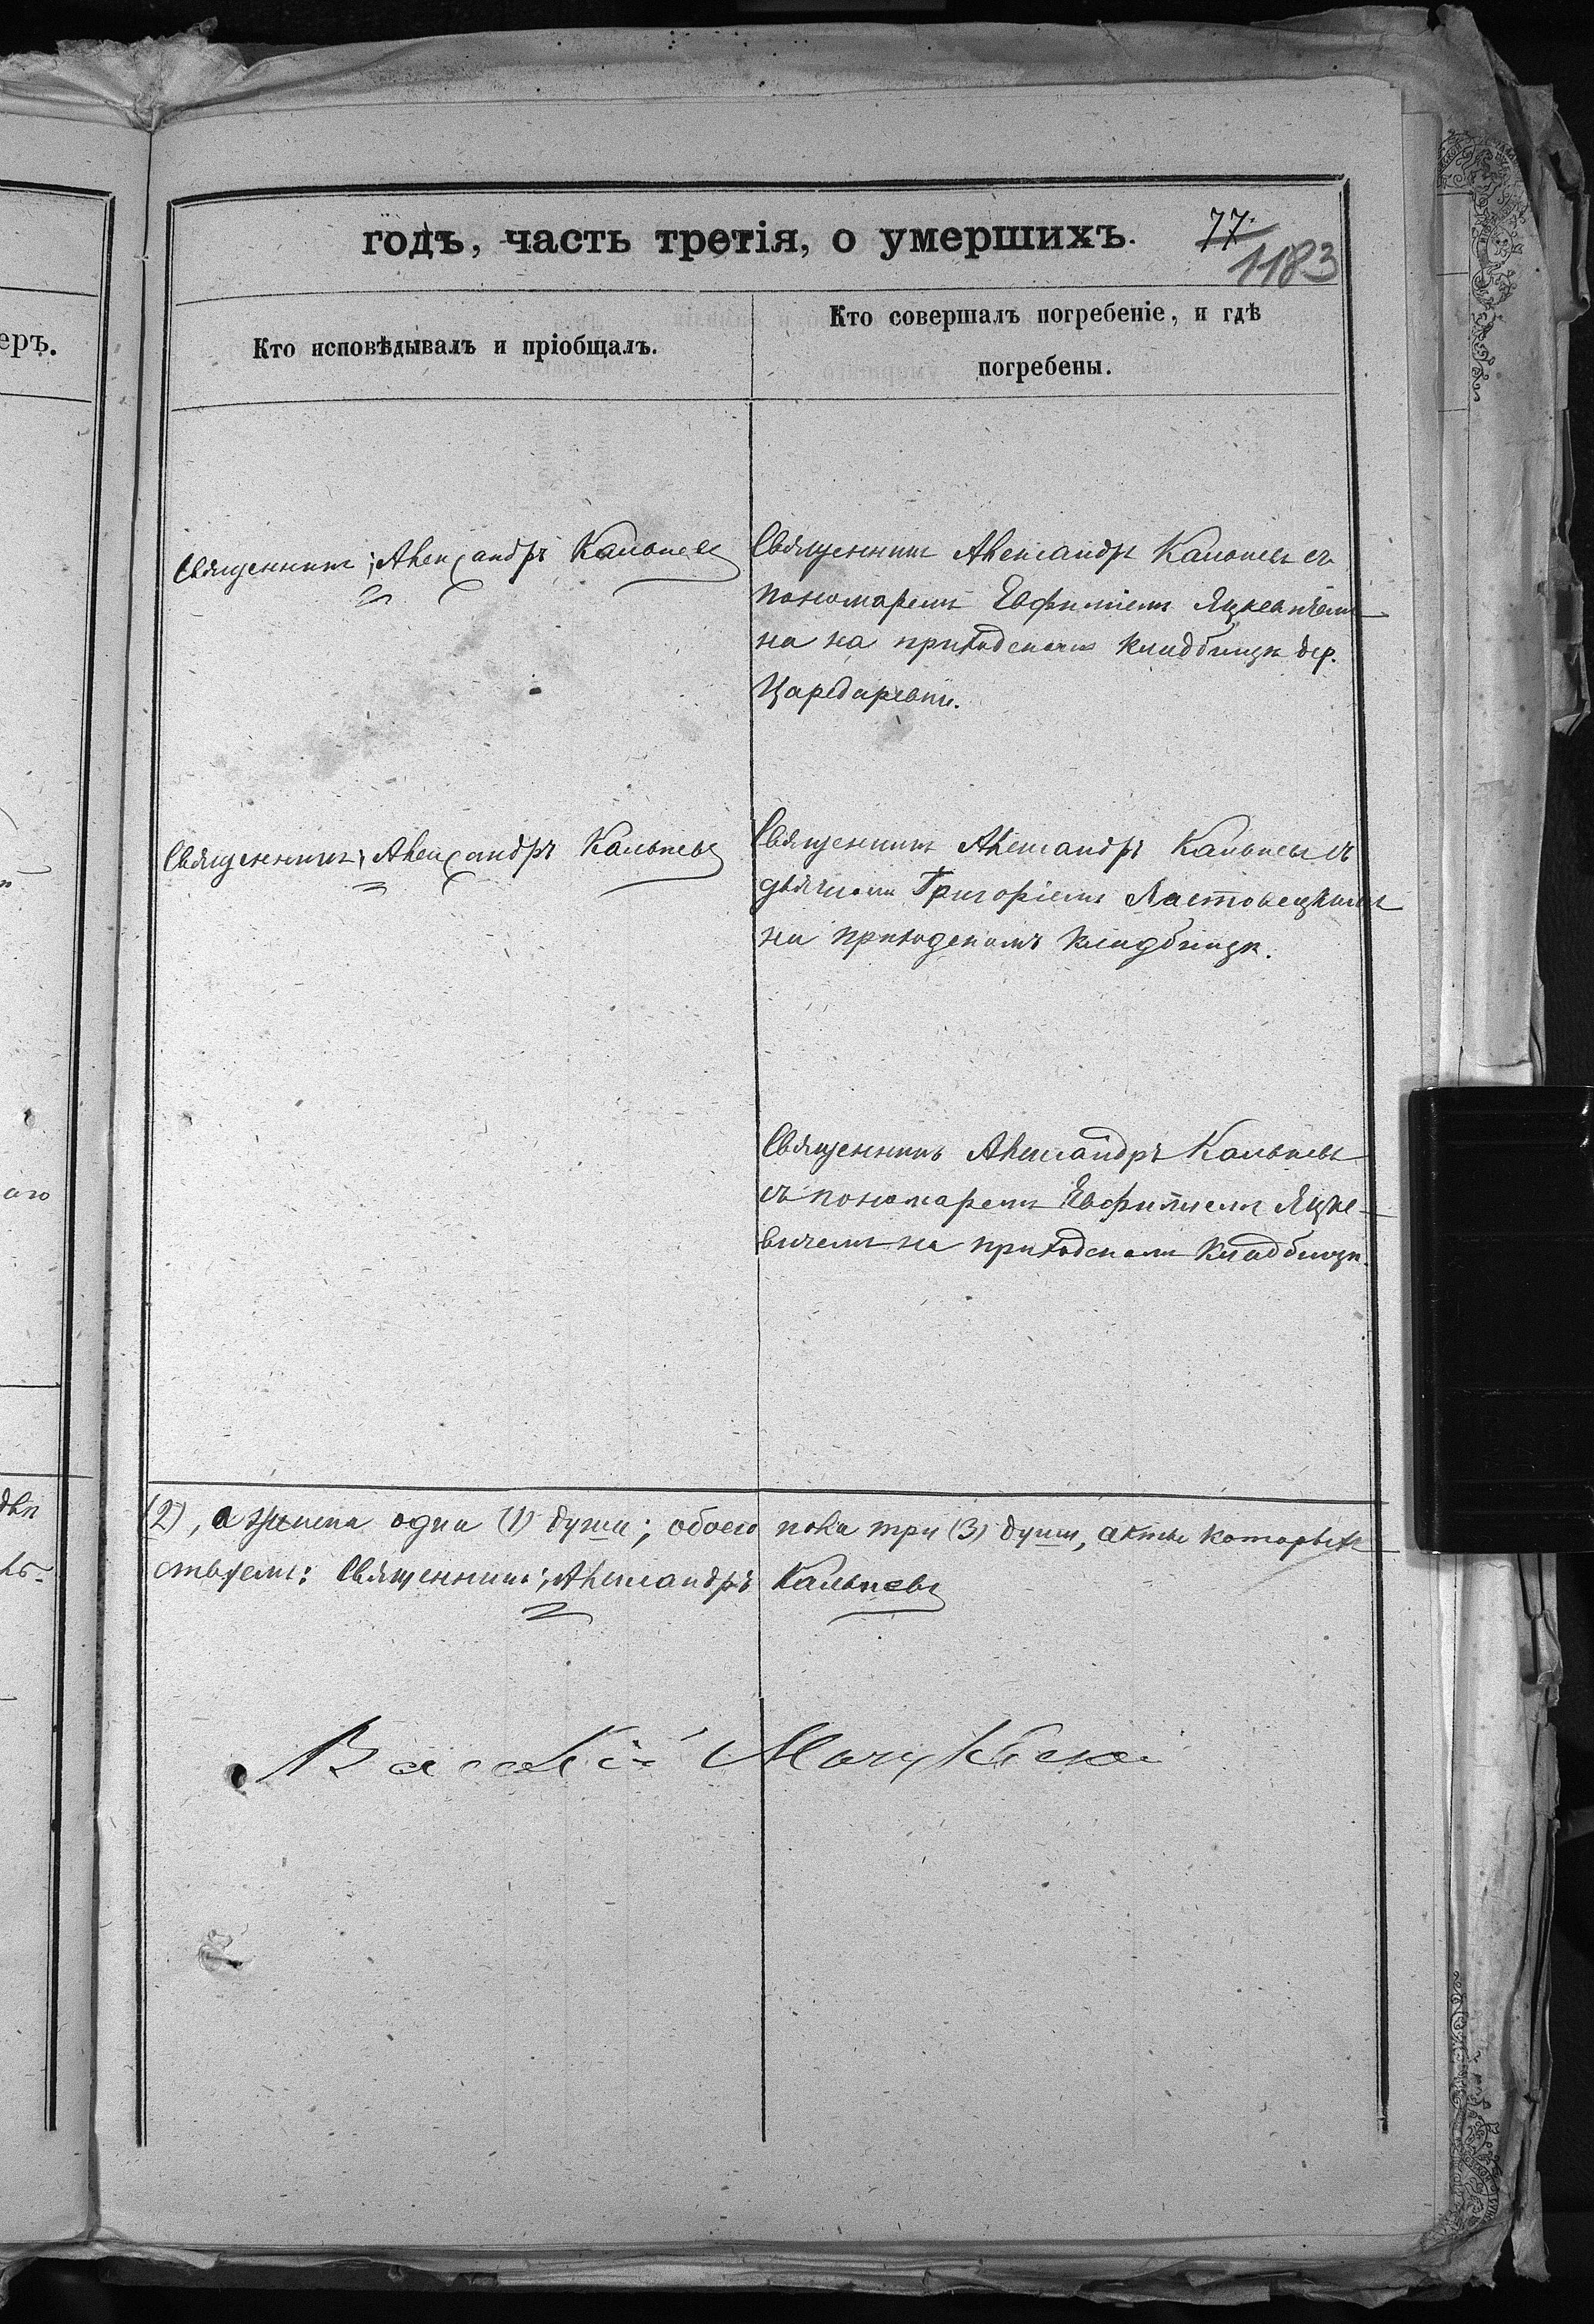 годъ, часть третія, о умершихъ.
77.
1183
еръ.
Кто исповѣдывалъ и пріобщалъ.
Кто совершалъ погребеніе, и гдѣ
погребены.
Священникъ Александръ
Священникъ Александръ съ
пономаремъ Евфиміемъ Яцкевичемъ
на на приходскомъ кладбищѣ дер.
Священникъ Александръ
Священникъ Александръ съ
дьячкомъ Григоріемъ
на приходскомъ кладбищѣ.
Священникъ Александръ
съ пономаремъ Евфиміемъ Яцке-
вичемъ на приходскомъ кладбищѣ.
(2), а одна (1) душа; обоего пола три (3) души, акты которыхъ
Священникъ Александръ